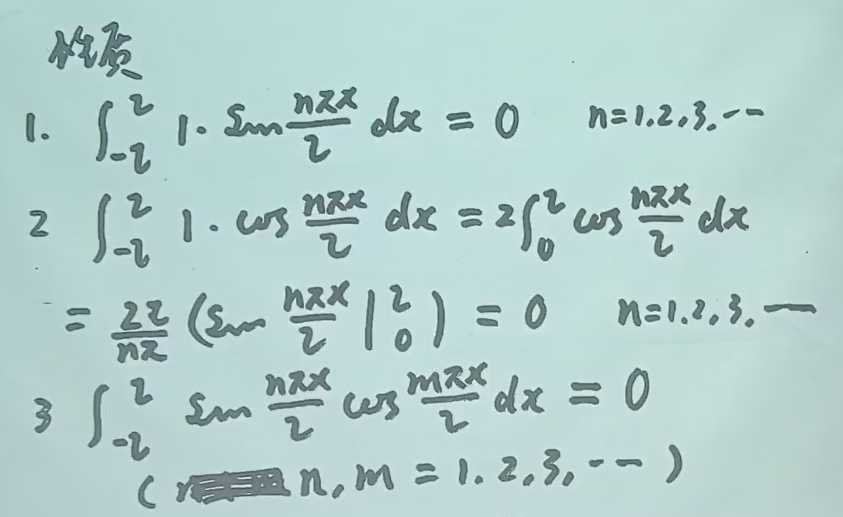 性质
1. ∫_{-l}^{l} 1· sin \frac{nπx}{l} dx = 0  n=1.2,3.--
2 ∫_{-l}^{l} 1· cos \frac{nπx}{l} dx = 2∫_{0}^{l} cos \frac{nπx}{l} dx
= \frac{2l}{nπ} (sin \frac{nπx}{l} |_{0}^{l}) = 0  n=1.2,3.—
3 ∫_{-l}^{l} sin \frac{nπx}{l} cos \frac{mπx}{l} dx = 0
( n, m = 1.2,3,-- )